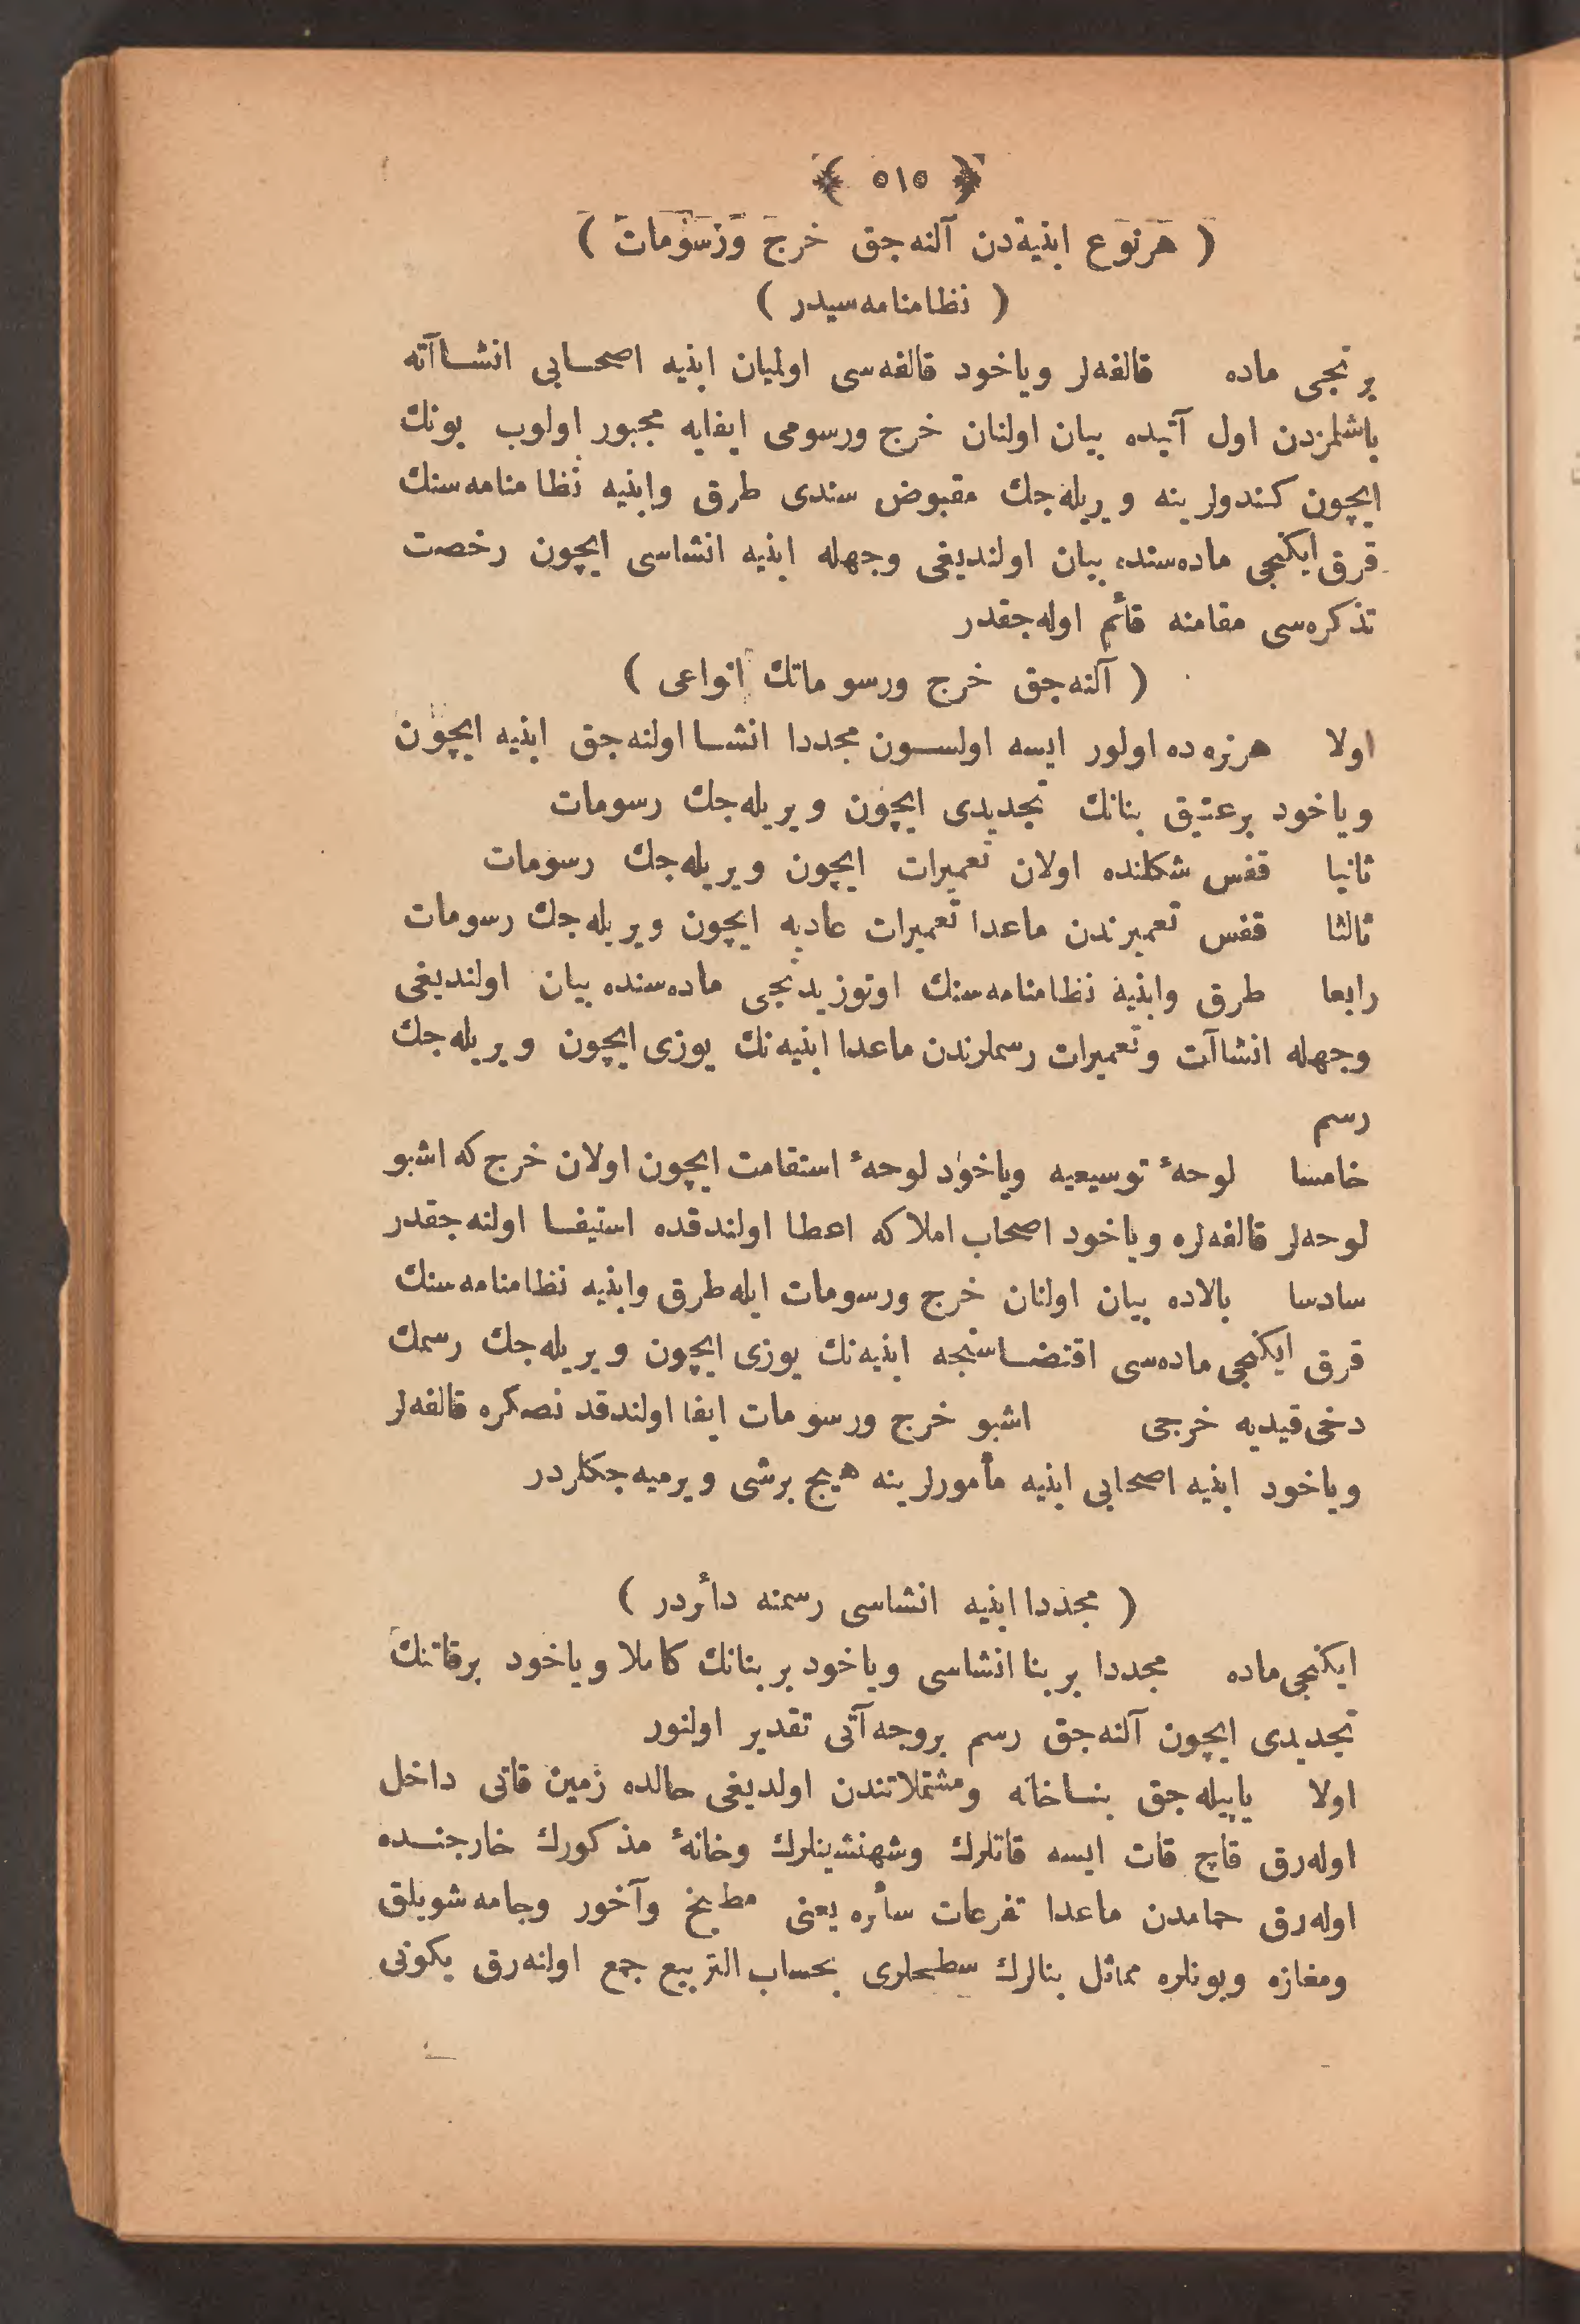 ﴿ ٥١٥ ﴾
( هرنوع ابنیه‌دن آلنه‌جق خرج ورسومات )
( نظامنامه‌سیدر )
برنجی ماده قالفه‌لر ویاخود قالفه‌سی اولمیان ابنیه اصحابی انشاآته
باشلمزدن اول آتیده بیان اولنان خرج ورسومی ایفایه مجبور اولوب بونك
ایچون كندولرینه ویریله‌جك مقبوض سندی طرق وابنیه نظامنامه‌سنك
قرق ایكنجی ماده‌سنده بیان اولندیغی وجهله ابنیه انشاسی ایچون رخصت
تذكره‌سی مقامنه قائم اوله‌جقدر
( آلنه‌جق خرج ورسوماتك انواعی )
اولا هرنره‌ده اولور ایسه اولسون مجددا انشا اولنه‌جق ابنیه ایچون
ویاخود برعتیق بنانك تجدیدی ایچون ویریله‌جك رسومات
ثانیا قفس شكلنده اولان تعمیرات ایچون ویریله‌جك رسومات
ثالثا قفس تعمیرندن ماعدا تعمیرات عادیه ایچون ویریله‌جك رسومات
رابعا طرق وابنیه نظامنامه‌سنك اوتوز یدنجی ماده‌سنده بیان اولندیغی
وجهله انشاآت وتعمیرات رسملرندن ماعدا ابنیه‌نك یوزی ایچون ویریله‌جك
رسم
خامسا لوحهٔ توسیعیه ویاخود لوحهٔ استقامت ایچون اولان خرج كه اشبو
لوحه‌لر قالفه‌لره ویاخود اصحاب املاكه اعطا اولندقده استیفا اولنه‌جقدر
سادسا بالاده بیان اولنان خرج ورسومات ایله طرق وابنیه نظامنامه‌سنك
قرق ایكنجی ماده‌سی اقتضاسنجه ابنیه‌نك یوزی ایچون ویریله‌جك رسمك
دخی قیدیه خرجی اشبو خرج ورسومات ایفا اولندقدنصكره قالفه‌لر
ویاخود ابنیه اصحابی ابنیه مأمورلرینه هیچ برشی ویرمیه‌جكلردر
( مجددا ابنیه انشاسی رسمنه دائردر )
ایكنجی ماده مجددا بر بنا انشاسی ویاخود بر بنانك كاملا ویاخود برقاتنك
تجدیدی ایچون آلنه‌جق رسم بروجه آتی تقدیر اولنور
اولا یاپیله‌جق بنا خانه ومشتملاتندن اولدیغی حالده زمین قاتی داخل
اوله‌رق قاچ قات ایسه قاتلرك وشهنشینلرك وخانهٔ مذكورك خارجنده
اوله‌رق حمامدن ماعدا تفرعات سائره یعنی مطبخ وآخور وجامه‌شویلق
ومغازه وبونلره مماثل بنالرك سطحلری بحساب التربیع جمع اولنه‌رق یكونی